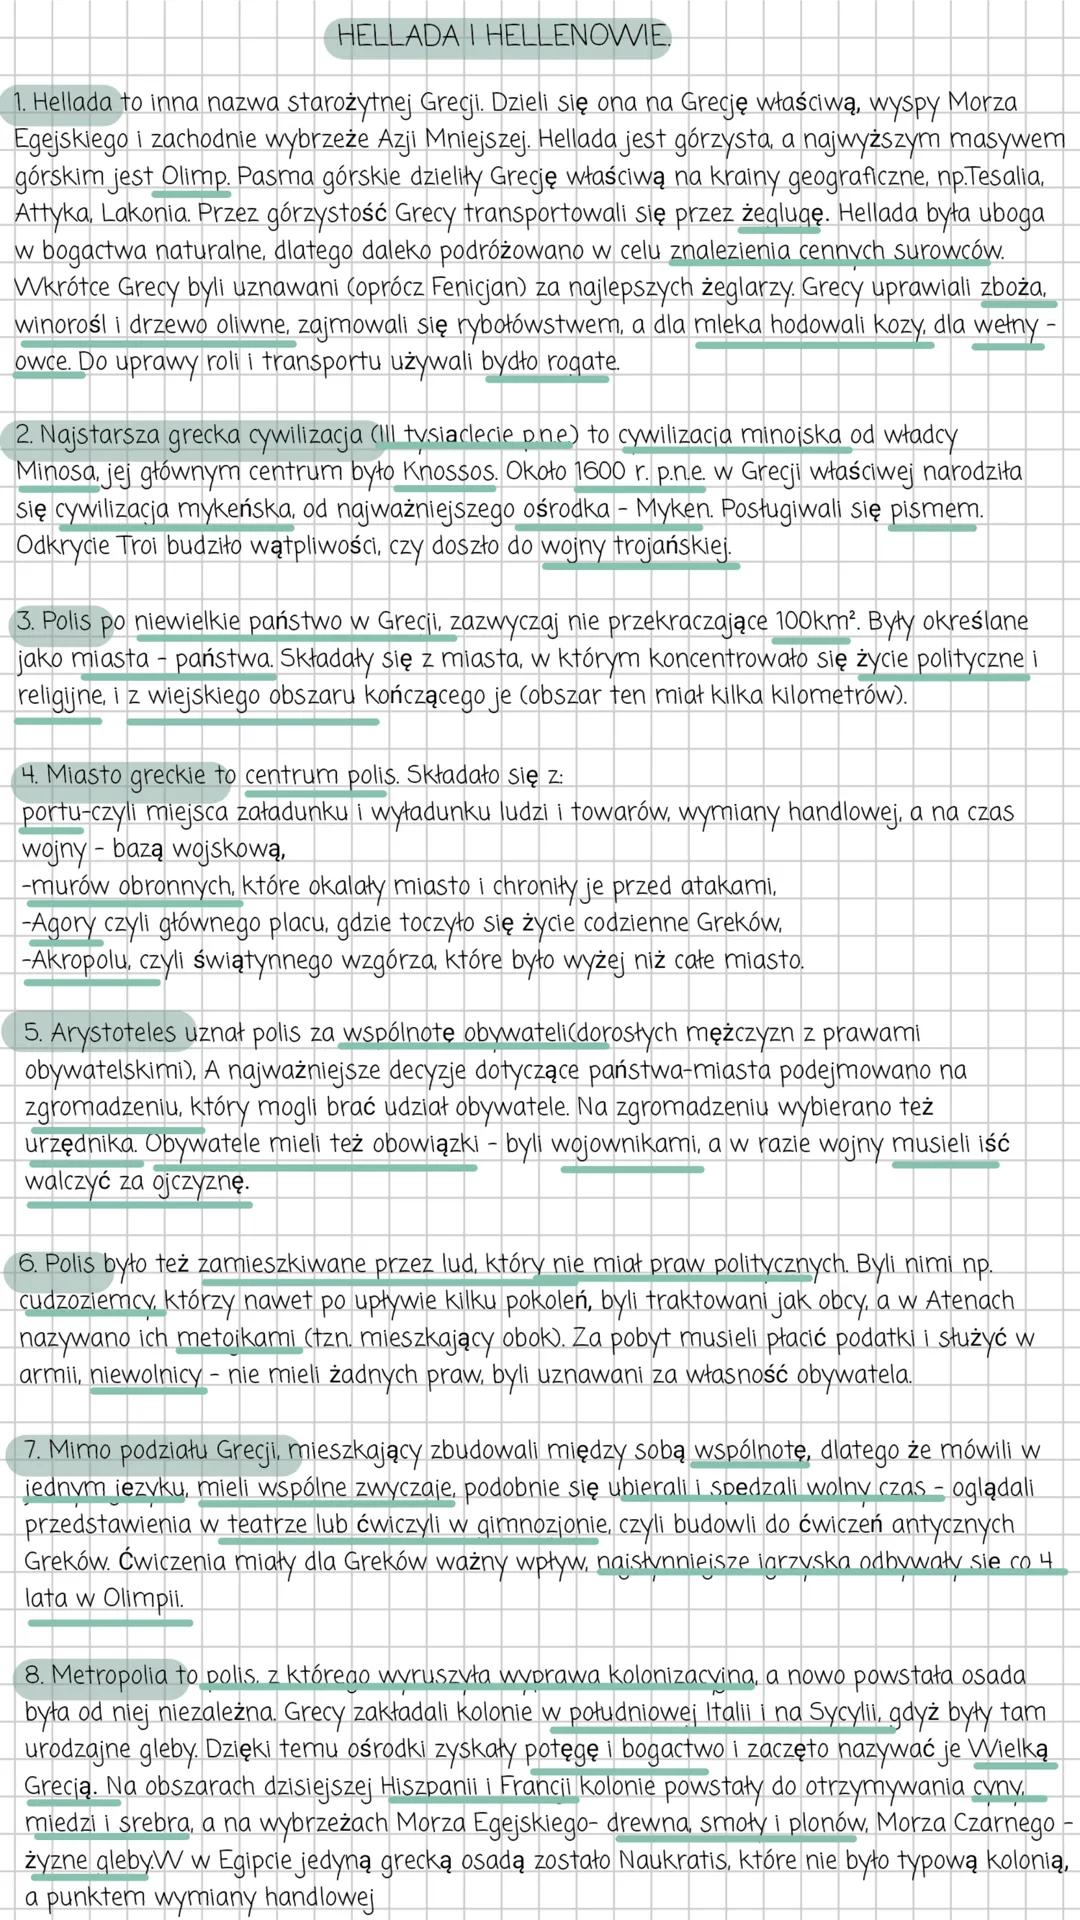 HELLADA I HELLENOWIE.
1. Hellada to inna nazwa starożytnej Grecji. Dzieli się ona na Grecję właściwą, wyspy Morza
Egejskiego i zachodnie wybrzeże Azji Mniejszej. Hellada jest górzysta, a najwyższym masywem
górskim jest Olimp. Pasma górskie dzieliły Grecję właściwą na krainy geograficzne, np.Tesalia,
Attyka, Lakonia. Przez górzystość Grecy transportowali się przez żeglugę. Hellada była uboga
w bogactwa naturalne, dlatego daleko podróżowano w celu znalezienia cennych surowców.
Wkrótce Grecy byli uznawani (oprócz Fenicjan) za najlepszych żeglarzy. Grecy uprawiali zboża,
winorośl i drzewo oliwne, zajmowali się rybołówstwem, a dla mleka hodowali kozy, dla wełny -
owce. Do uprawy roli i transportu używali bydło rogate.
2. Najstarsza grecka cywilizacja (III tysiąclecie p.n.e) to cywilizacja minojska od władcy
Minosa, jej głównym centrum było Knossos. Około 1600 r. p.n.e. w Grecji właściwej narodziła
się cywilizacja mykeńska, od najważniejszego ośrodka - Myken. Posługiwali się pismem.
Odkrycie Troi budziło wątpliwości, czy doszło do wojny trojańskiej.
3. Polis po niewielkie państwo w Grecji, zazwyczaj nie przekraczające 100km². Były określane
jako miasta - państwa. Składały się z miasta, w którym koncentrowało się życie polityczne i
religijne, i z wiejskiego obszaru kończącego je (obszar ten miał kilka kilometrów).
4. Miasto greckie to centrum polis. Składało się z:
portu-czyli miejsca załadunku i wyładunku ludzi i towarów, wymiany handlowej, a na czas
wojny - bazą wojskową,
-murów obronnych, które okalały miasto i chroniły je przed atakami,
-Agory czyli głównego placu, gdzie toczyło się życie codzienne Greków,
-Akropolu, czyli świątynnego wzgórza, które było wyżej niż całe miasto.
5. Arystoteles uznał polis za wspólnotę obywateli(dorosłych mężczyzn z prawami
obywatelskimi), A najważniejsze decyzje dotyczące państwa-miasta podejmowano na
zgromadzeniu, który mogli brać udział obywatele. Na zgromadzeniu wybierano też
urzędnika. Obywatele mieli też obowiązki - byli wojownikami, a w razie wojny musieli iść
walczyć za ojczyznę.
6. Polis było też zamieszkiwane przez lud, który nie miał praw politycznych. Byli nimi np.
cudzoziemcy, którzy nawet po upływie kilku pokoleń, byli traktowani jak obcy, a w Atenach
nazywano ich metojkami (tzn. mieszkający obok). Za pobyt musieli płacić podatki i służyć w
armii, niewolnicy - nie mieli żadnych praw, byli uznawani za własność obywatela.
7. Mimo podziału Grecji, mieszkający zbudowali między sobą wspólnotę, dlatego że mówili w
jednym języku, mieli wspólne zwyczaje, podobnie się ubierali i spędzali wolny czas - oglądali
przedstawienia w teatrze lub ćwiczyli w gimnozjonie, czyli budowli do ćwiczeń antycznych
Greków. Ćwiczenia miały dla Greków ważny wpływ, najsłynniejsze igrzyska odbywały się co 4
lata w Olimpii.
8. Metropolia to polis, z którego wyruszyła wyprawa kolonizacyjna, a nowo powstała osada
była od niej niezależna. Grecy zakładali kolonie w południowej Italii i na Sycylii, gdyż były tam
urodzajne gleby. Dzięki temu ośrodki zyskały potęgę i bogactwo i zaczęto nazywać je Wielką
Grecją. Na obszarach dzisiejszej Hiszpanii i Francji kolonie powstały do otrzymywania cyny,
miedzi i srebra, a na wybrzeżach Morza Egejskiego- drewna, smoły i plonów, Morza Czarnego -
żyzne gleby.W w Egipcie jedyną grecką osadą zostało Naukratis, które nie było typową kolonią,
a punktem wymiany handlowej